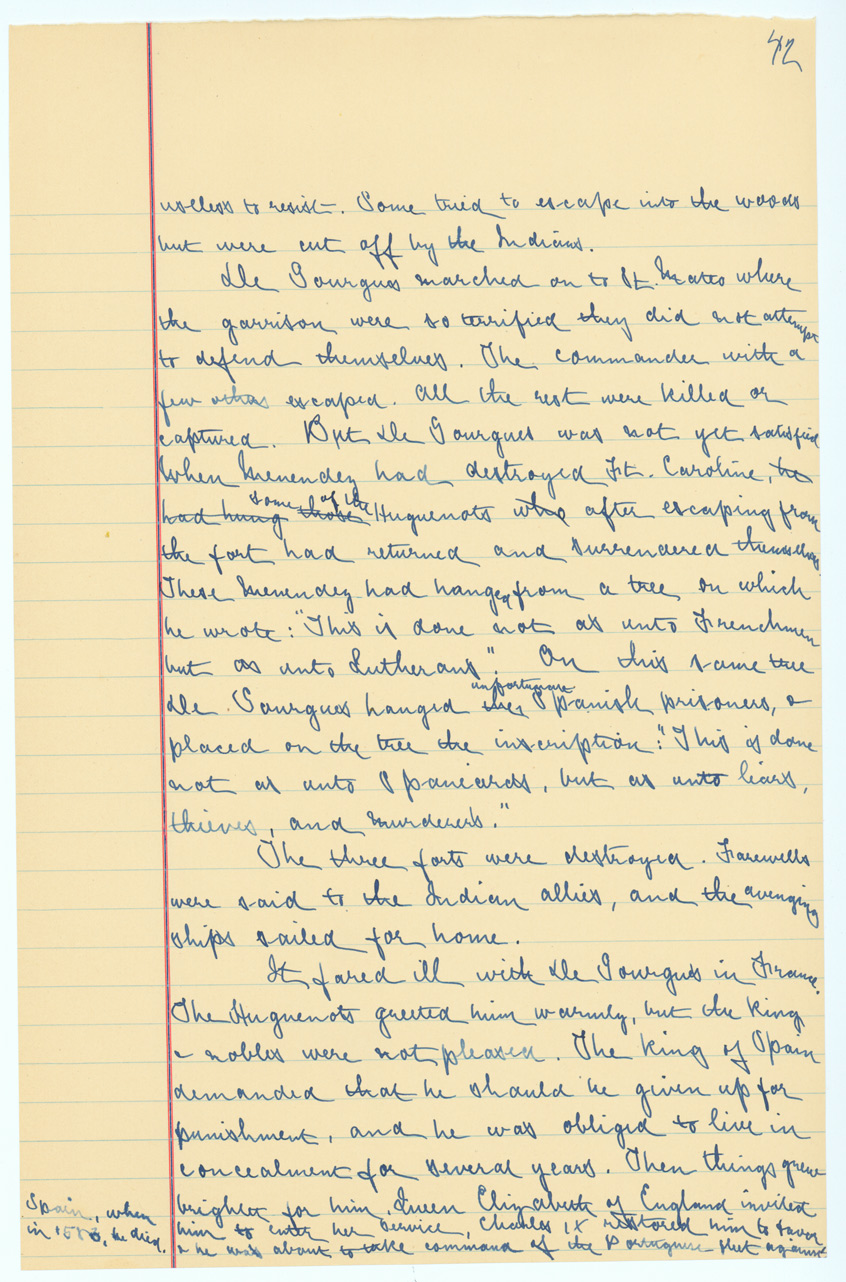 42
useless to resist. Some tried to escape into the woods
but were cut off by the Indians.
De Gourgues marched on to St. Mateo where
the garrison were so terrified they did not attempt
to defend themselves. The commander with a
few others escaped. All the rest were killed or
captured. But De Gourgues was not yet satisfied
When Menendez had destroyed Ft. Caroline, he
had hung those some of the Huguenots who after escaping from
the fort had returned and surrendered themselves.
These Menendez had hanged from a tree on which
he wrote: "This is done not as unto Frenchmen
but as unto Lutherans". On this same tree
De Gourgues hanged his unfortunate Spanish prisoners, &
placed on the tree the inscription: "This is done
not as unto Spaniards, but as unto liars,
thieves, and murderers."
The three forts were destroyed. Farewells
were said to the Indian allies, and the avenging
ships sailed for home.
It fared ill with De Gourgues in France.
The Huguenots greeted him warmly, but the King
& nobles were not pleased. The King of Spain
demanded that he should be given up for
punishment, and he was obliged to live in
concealment for several years. Then things grew
brighter for him. Queen Elizabeth of England invited
him to enter her service, Charles IX restored him to favor
& he was about to take command of the Portuguese fleet against
Spain, when
in he died.